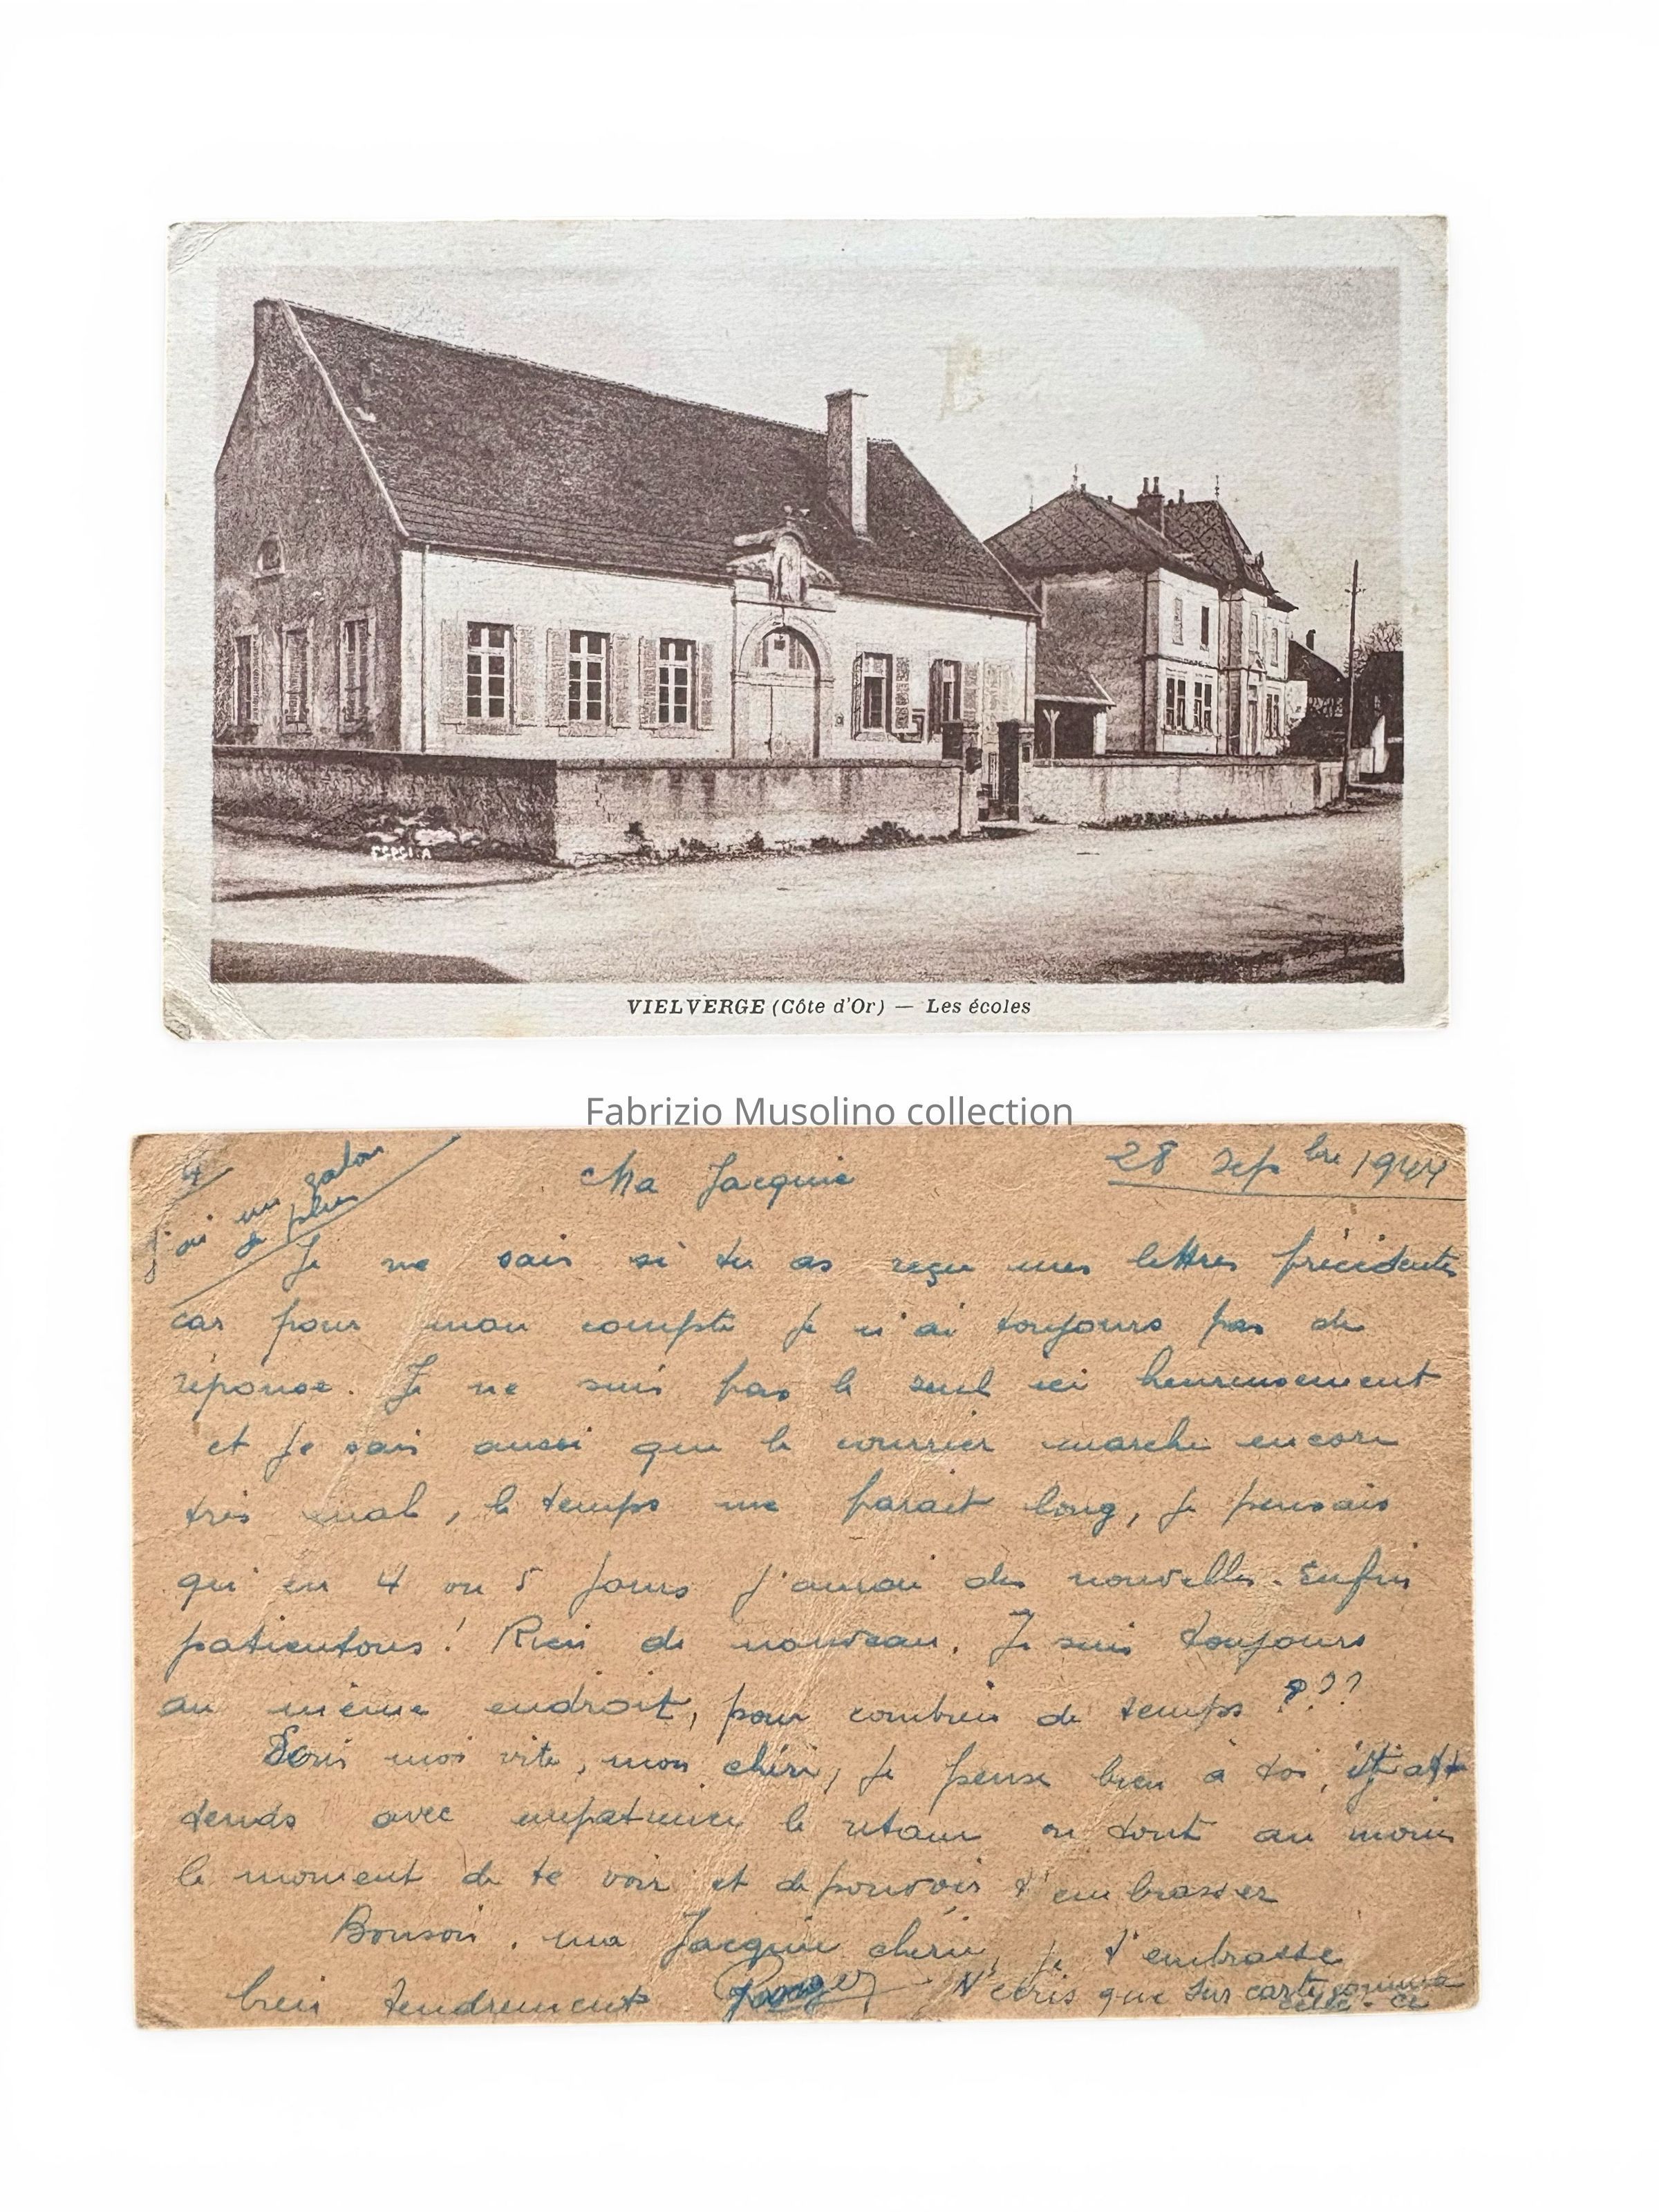 VIELVERGE (Côte d'Or) — Les écoles
Fabrizio Musolino collection
4
j'ai un galon
de plus
Ma Jacquie
28 Sepbre 1944
Je ne sais si tu as reçu mes lettres précédentes
car pour mon compte je n'ai toujours pas de
réponse. Je ne suis pas le seul ici heureusement
et je sais aussi que le courrier marche encore
très mal, le temps me parait long, je pensais
qu'en 4 ou 5 jours j'aurai des nouvelles. Enfin
patientons! Rien de nouveau. Je suis toujours
au même endroit, pour combien de temps ???
Ecris moi vite, mon chéri, je pense bien à toi, et j'at
tends avec impatience le retour ou tout au moins
le moment de te voir et de pouvoir t'embrasser
Bonsoir, ma Jacquie chérie, je t'embrasse
bien tendrement Roger N'écris que sur carte comme
celle-ci